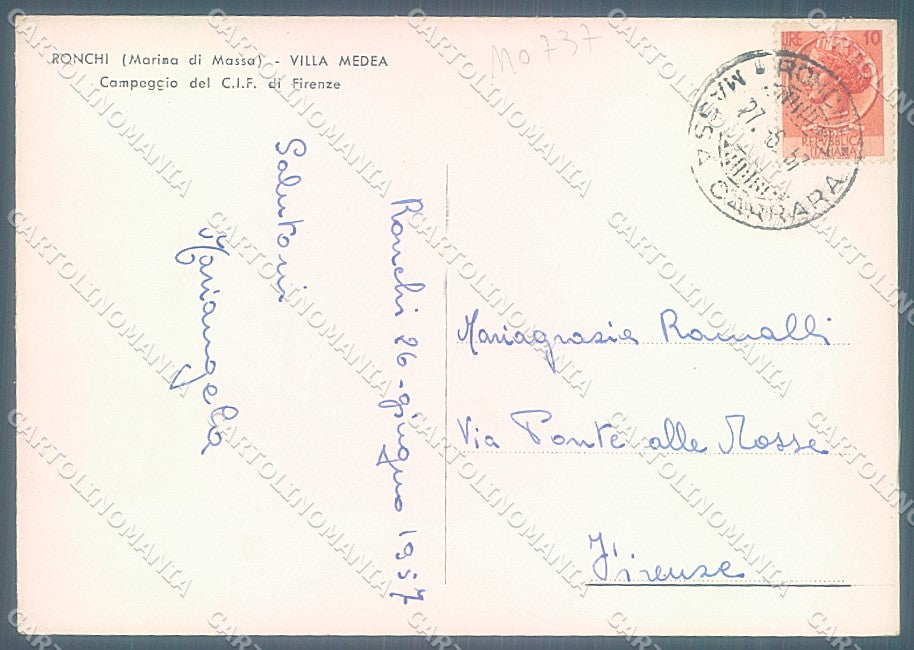 RONCHI (Marina di Massa) - VILLA MEDEA
Campeggio del C.I.F. di Firenze
MO737
LIRE 10
REPUBBLICA
ITALIANA
RONCHI MASSA CARRARA
27.6.57
Ronchi 26-giugno 1957
Salutoni
Mariangela
Mariagrazia Ramalli
Via Ponte alle Mosse
Firenze
CARTOLINOMANIA